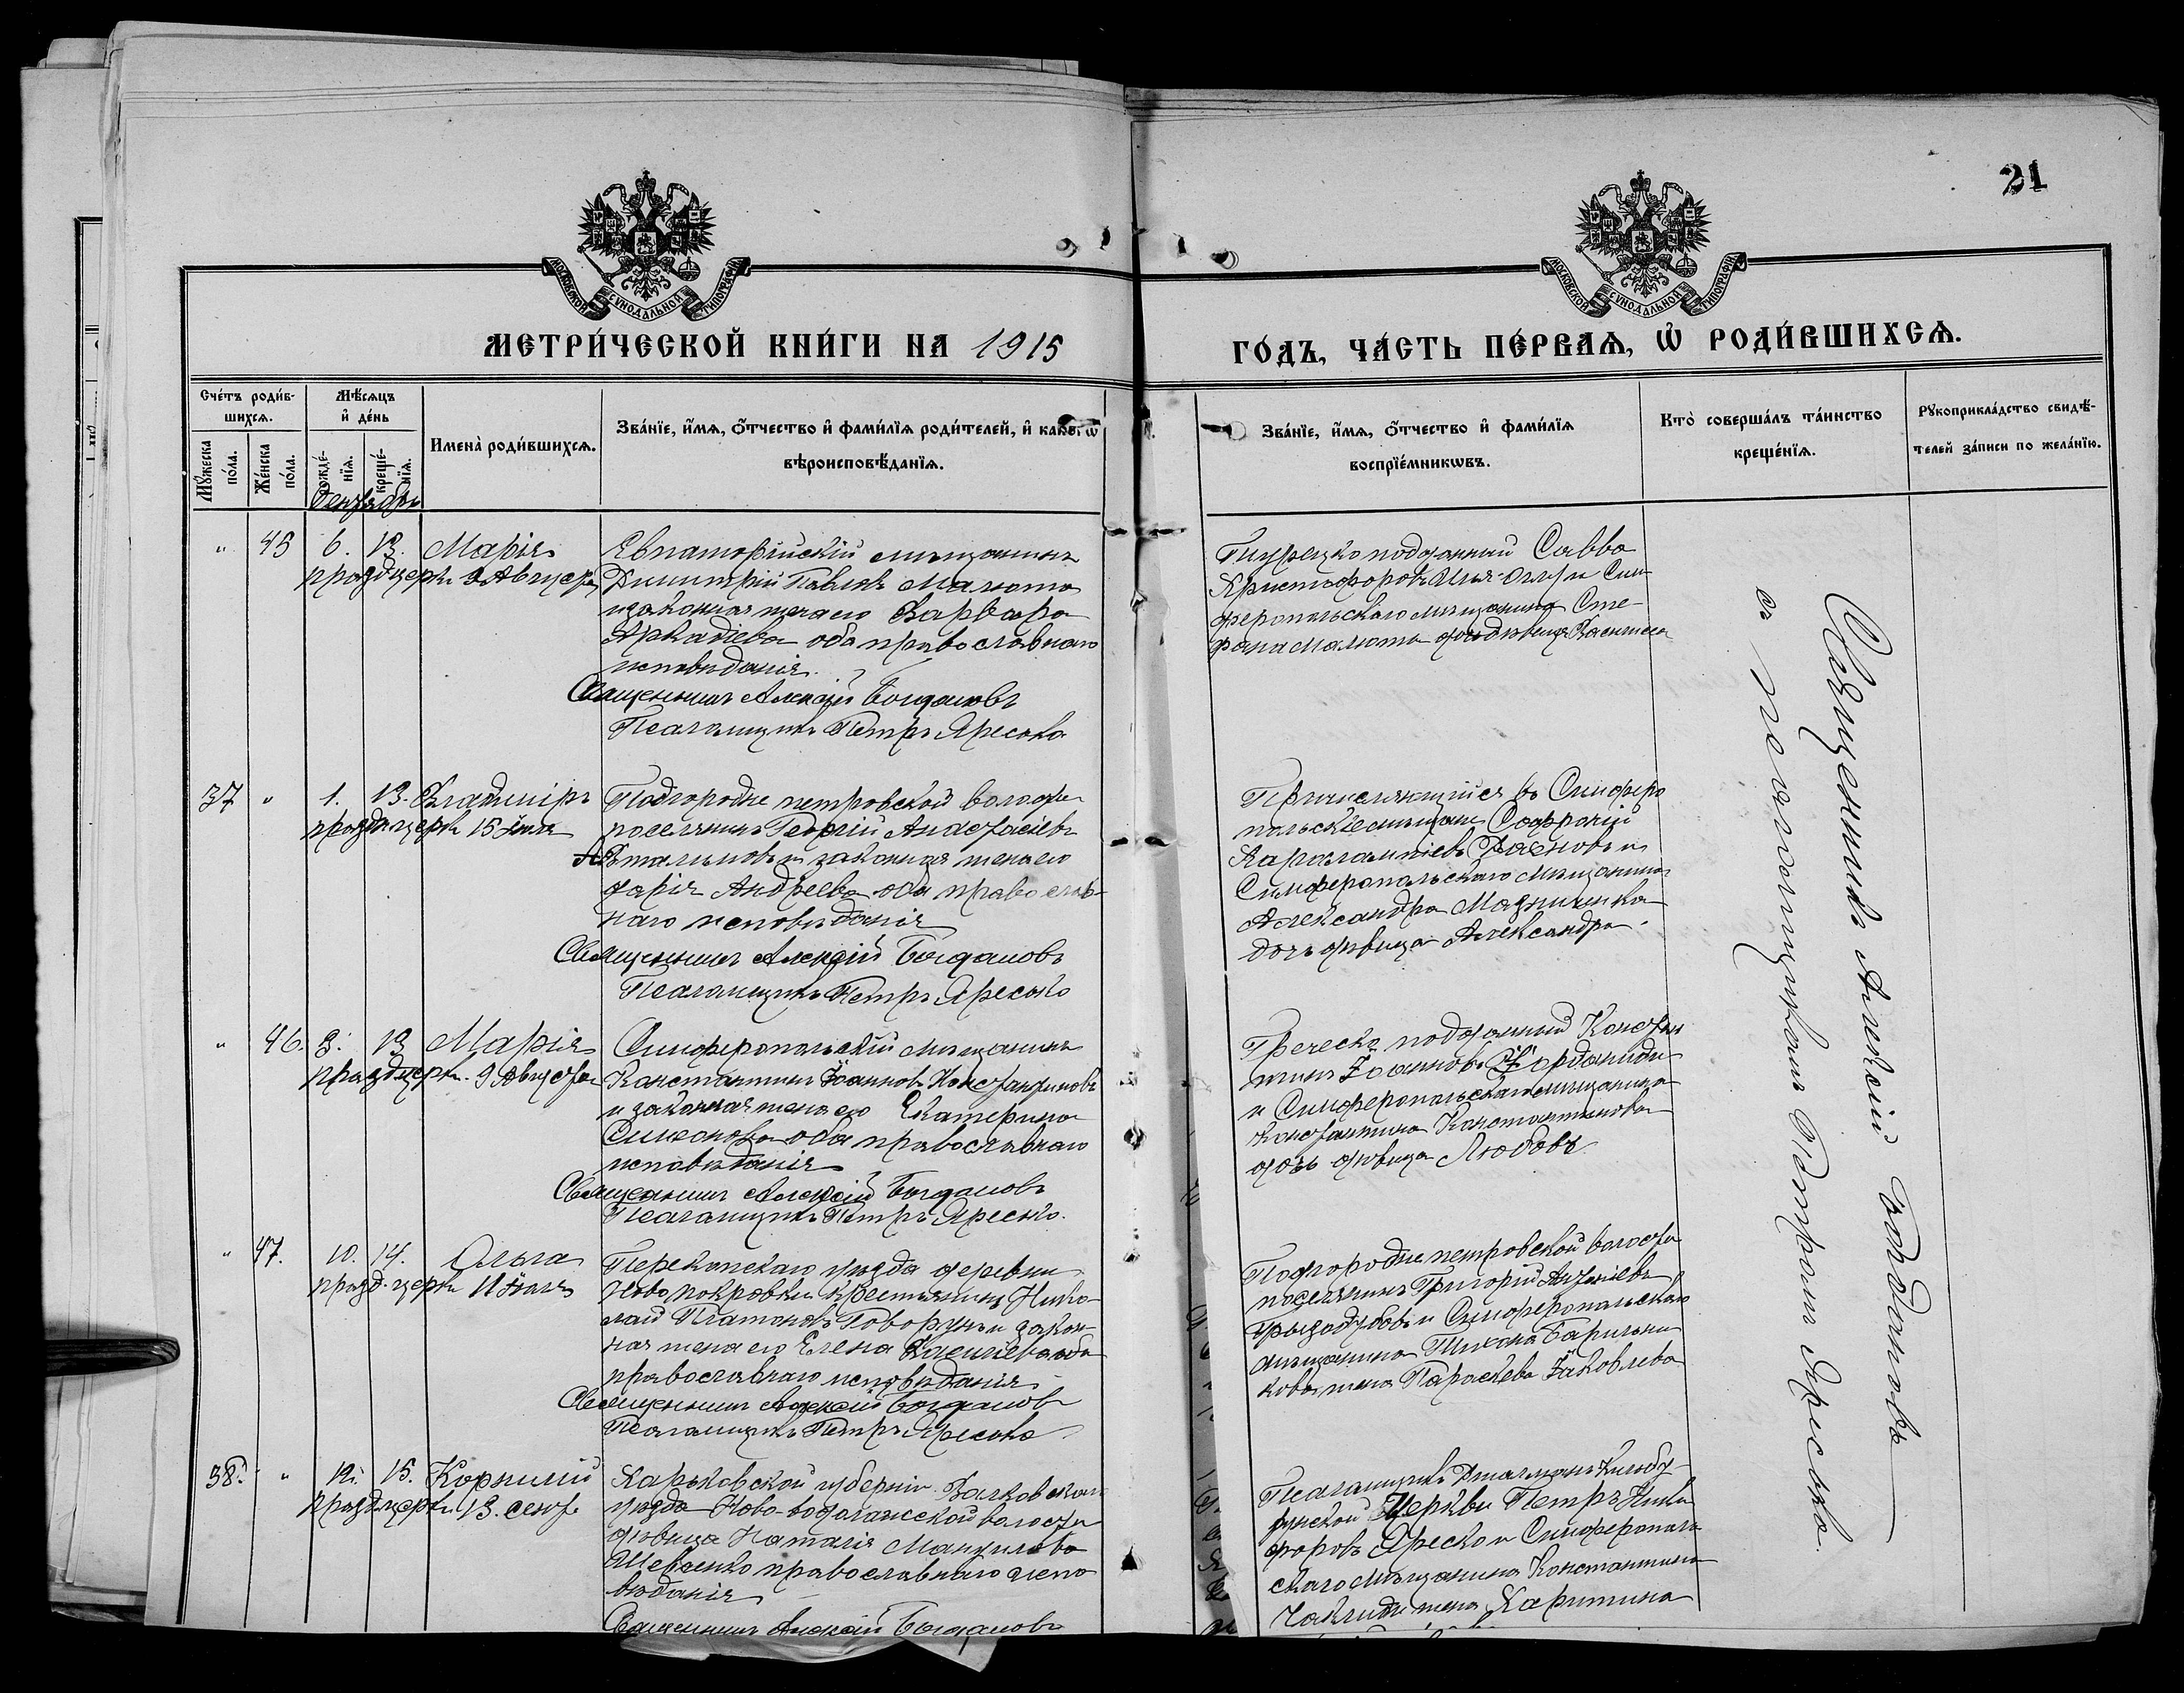 21
МОСКОВСКОЙ СѴНОДАЛЬНОЙ ТИПОГРАФІИ
МОСКОВСКОЙ СѴНОДАЛЬНОЙ ТИПОГРАФІИ
МЕТРИ́ЧЕСКОЙ КНИ́ГИ НА 1915
ГО́ДЪ, ЧА́СТЬ ПЕ́РВАѦ, Ѡ҆ РОДИ́ВШИХСѦ.
Сче́тъ роди́в-
шихсѧ.
Мꙋ́жеска по́ла.
Же́нска по́ла.
Мѣ́сяцъ
и҆ де́нь
рожде́-нїѧ.
креще́-нїѧ.
Имена̀ роди́вшихсѧ.
Зва́нїе, и҆́мѧ, ѻ҆́тчество и҆ фами́лїѧ роди́телей, и҆ како́гѡ
вѣроисповѣ́данїѧ.
Зва́нїе, и҆́мѧ, ѻ҆́тчество и҆ фами́лїѧ
воспрїе́мникѡвъ.
Кто̀ соверша́лъ та́инство
креще́нїѧ.
Рꙋкоприкла́дство свидѣ́-
телей за́писи по жела́нїю.
Сентябрь
" 45 6. 13. Марія
празд. церк. 9 Августа
Евпаторійскій мѣщанинъ
Димитрій Павловъ Малюта
и законная жена его Варвара
Аркадіева оба православнаго
исповѣданія.
Священникъ Алексій Богдановъ
Псаломщикъ Петръ Яресько
Турецко подданный Савва
Христофоровъ и Сим-
феропольскаго мѣщанина Сте-
фана Малюты дѣвица
37 " 1. 13. Владиміръ
празд. церк. 15 Іюля
Подгородне петровской волости
поселянинъ Георгій Анастасіевъ
и законная жена его
Дарія Андреева оба православ-
наго исповѣданія
Священникъ Алексій Богдановъ
Псаломщикъ Петръ Яресько
Причисляющійся въ Симферо
польскіе мѣщане Софроній
Харалампіевъ и
Симферопольскаго мѣщанина
Александра
дочь дѣвица Александра.
" 46. 3. 13 Марія
празд. церк. 9 Августа
Симферопольскій мѣщанинъ
Константинъ Іоанновъ Константиновъ
и законная жена его Екатерина
Симеонова оба православнаго
исповѣданія
Священникъ Алексій Богдановъ
Псаломщикъ Петръ Яресько.
Греческо подданный Констан
тинъ Іоанновъ Іорданиди
и Симферопольскаго мѣщанина
Константина Константинова
дочь дѣвица Любовь.
" 47. 10. 14. Ольга
празд. церк. 11 Іюля
Перекопскаго уѣзда деревни
Ново покровки крестьянинъ Нико-
лай Платоновъ Говорунъ и закон-
ная жена его Елена Василіева оба
православнаго исповѣданія
Священникъ Алексій Богдановъ
Псаломщикъ Петръ Яресько
Подгородне петровской волости
поселянинъ Григорій
и Симферопольскаго
мѣщанина Тихона Барильни
кова жена Параскева Іаковлева
38. " 12. 15. Корнилій
празд. церк. 13. сент.
Харьковской губерніи Валковскаго
уѣзда Ново-водолажской волости
дѣвица Наталія
Шевченко православнаго испо
вѣданія
Священникъ Алексій Богдановъ
Псаломщикъ
Церкви Петръ Ники
форовъ Яресько и Симферополь
скаго мѣщанина Константина
жена Харитина
Священникъ Алексій Богдановъ
съ псаломщикомъ Петромъ Яресько.